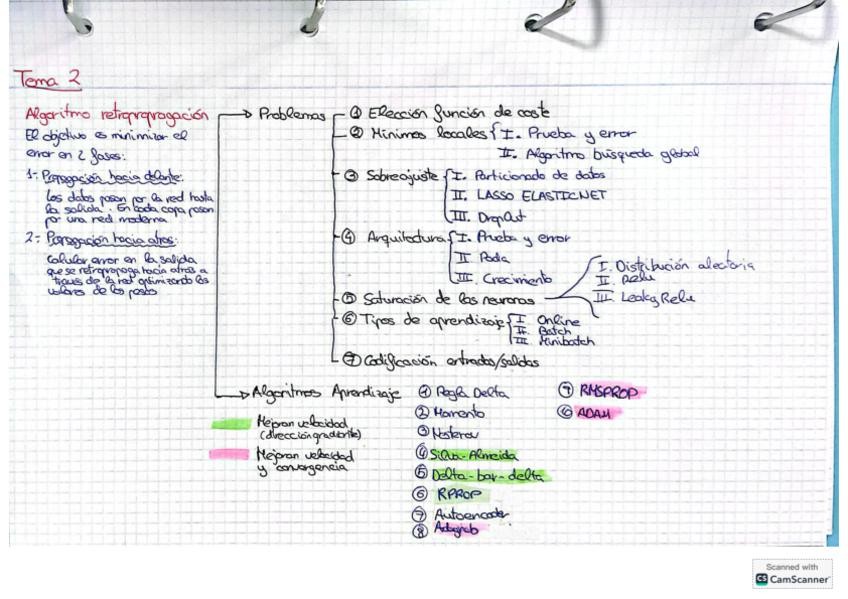 Tema 2
Algoritmo retropropagación
El objetivo es minimizar el
error en 2 fases:
1- Propagación hacia delante:
Los datos pasan por la red hasta
la salida. En cada capa pasan
por una red moderna
2- Propagación hacia atrás:
Calcular error en la salida
que se retropropaga hacia atras a
traves de la red optimizando los
valores de los pesos
Problemas
① Elección función de coste
② Mínimos locales
I. Prueba y error
II. Algoritmo búsqueda global
③ Sobreajuste
I. Particionado de datos
II. LASSO ELASTICNET
III. DropOut
④ Arquitectura
I. Prueba y error
II Poda
III. Crecimiento
⑤ Saturación de las neuronas
I. Distribución aleatoria
II. Relu
III. Leaky Relu
⑥ Tipos de aprendizaje
I. Online
II. Batch
III. Minibatch
⑦ Codificación entradas/salidas
Algoritmos Aprendizaje
Mejoran velocidad
(dirección gradiente)
Mejoran velocidad
y convergencia
① Regla Delta
② Momento
③ Nesterov
④ Silva-Almeida
⑤ Delta-bar-delta
⑥ RPROP
⑦ Autoencoder
⑧
RMSPROP
ADAM
Scanned with
CS CamScanner